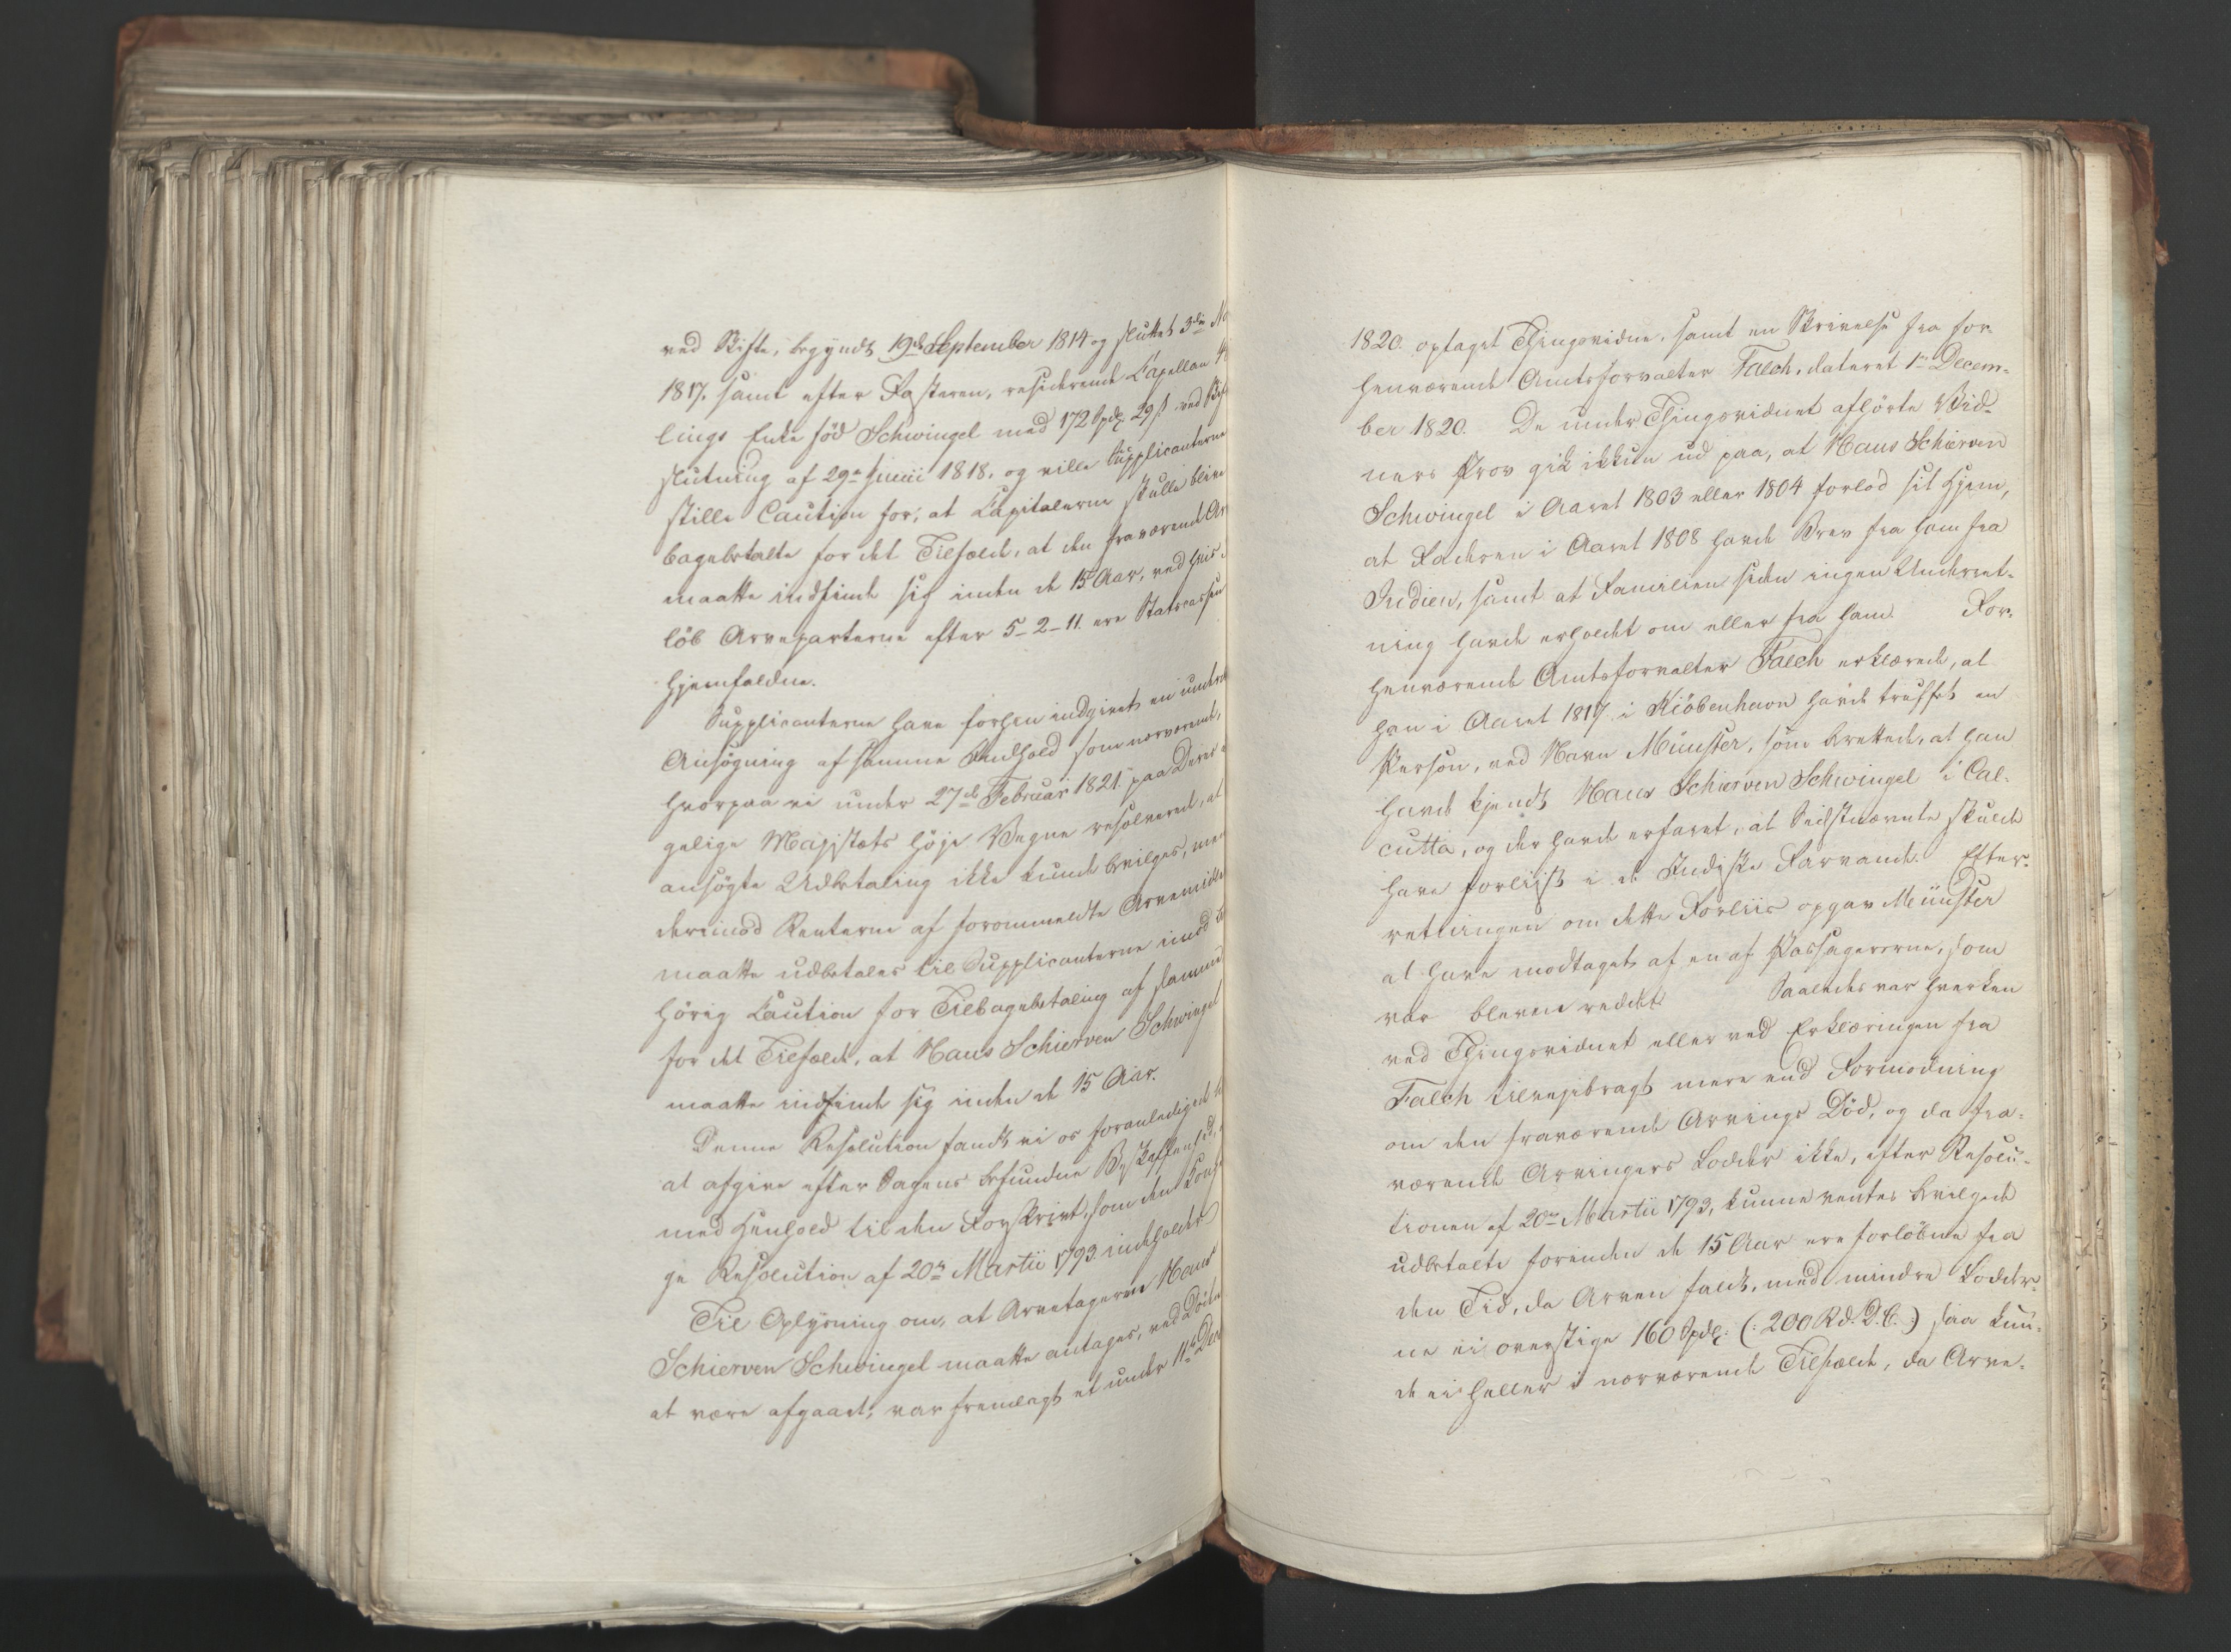 ved Skifte, begyndt 19de September 1814 og sluttet 3die No
1817, samt efter Fasteren, residerende Capellan
lings Enke fød Schwingel med 172 Spdlr. 29 ß ved Skif
slutning af 29de Junii 1818, og ville Supplicanterne
stille Caution for, at Capitalerne skulle blive
bagebetalte for det Tilfælde, at den fraværende Ar
maatte indfinde sig inden de 15 Aar, ved hvis
løb Arveparterne efter 5-2-11. ere Statscassen
hjemfaldne.
Supplicanterne have forhen indgivet en underd
Ansøgning af samme Indhold som nærværende,
hvorpaa vi under 27de Februar 1821 paa Deres
gelige Majestæts høje Vegne resolverede, at
ansøgte Udbetaling ikke kunde bevilges, men
derimod Renterne af forommeldte Arvemidle
maatte udbetales til Supplicanterne imod be
hørig Caution for Tilbagebetaling af samme
for det Tilfælde, at Hans Schierven Schwingel
maatte indfinde sig inden de 15 Aar.
Denne Resolution fandt vi os foranledigede
at afgive efter Sagens befundne Beskaffenhed,
med Henhold til den Forskrivt, som den Konge
ge Resolution af 20de Martii 1793 indeholder
Til Oplysning om, at Arvetageren Hans
Schierven Schwingel maatte antages, ved Døden
at være afgaaet, var fremlagt et under 11te Dec
1820. optaget Thingsvidne, samt en Skrivelse fra for-
henværende Amtsforvalter Falch, dateret 1ste Decem-
ber 1820. De under Thingsvidnet afhørte Vid-
ners Prov gik ikkun ud paa, at Hans Schierven
Schwingel i Aaret 1803 eller 1804 forlod sit Hjem,
at Faderen i Aaret 1808 havde Brev fra ham fra
Indien, samt at Familien siden ingen Underret-
ning havde erholdt om eller fra ham. For-
henværende Amtsforvalter Falch erklærede, at
han i Aaret 1817 i Kiøbenhavn havde truffet en
Person, ved Navn Münster, som berettede, at han
havde kjendt Hans Schierven Schwingel i Cal-
cutta, og der havde erfaret, at Sidstnævnte skulde
have forliist i de Indiske Farvande. Efter-
retningen om dette Forliis opgav Münster
at have modtaget af en af Passagererne, som
var bleven reddet. Saaledes var hverken
ved Thingsvidnet eller ved Erklæringen fra
Falch tilvejebragt mere end Formodning
om den fraværende Arvings Død, og da fra-
værende Arvingers Lodder ikke, efter Resolu-
tionen af 20de Martii 1793, kunne ventes bevilgede
udbetalte forinden de 15 Aar ere forløbne fra
den Tid, da Arven faldt, med mindre Lodder-
ne ei overstige 160 Spdlr: (: 200 Rd. D. C. :) saa kun-
de ei heller i nærværende Tilfælde, da Arve-